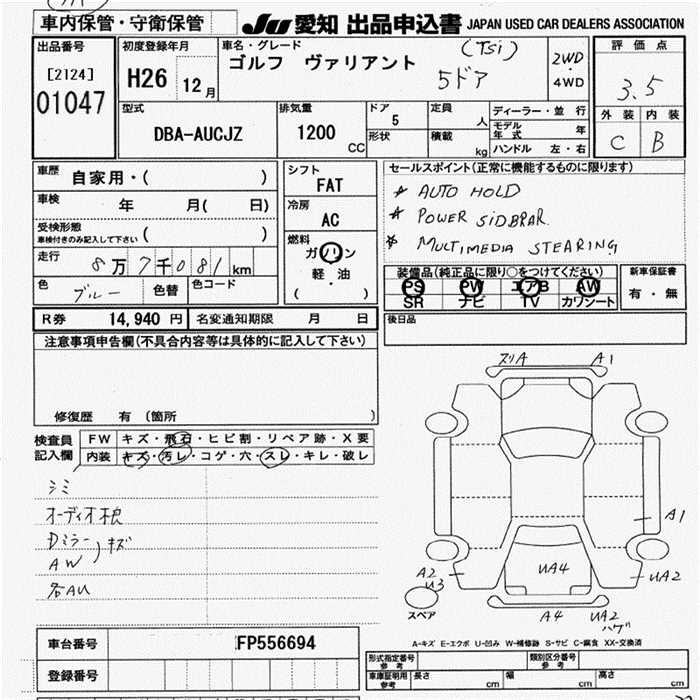 車内保管・守衛保管
JU 愛知 出品申込書 JAPAN USED CAR DEALERS ASSOCIATION
出品番号
[2124]
01047
初度登録年月
H26 12月
車名・グレード
ゴルフ ヴァリアント (TSi)
5ドア
2WD
・
4WD
評価点
3.5
外装 内装
C B
型式
DBA-AUCJZ
排気量
1200 CC
ドア 5
形状
定員 人
積載 kg
ディーラー・並行
モデル年式 年
ハンドル 左・右
車歴
自家用・( )
車検
年 月( 日)
受検形態
車検付きのみ記入して下さい ( )
走行
8万7千081km
色
ブルー
色替
色コード
シフト
FAT
冷房
AC
燃料
ガソリン
軽・油
( )
セールスポイント(正常に機能するものに限ります)
☆ AUTO HOLD
☆ POWER SIDBRAR
☆ MULTIMEDIA STEARING
装備品(純正品に限り○をつけてください)
PS PW エアB AW
SR ナビ TV カワシート
新車保証書
有・無
R券 14,940円
名変通知期限 月 日
後日品
注意事項申告欄(不具合内容等は具体的に記入して下さい)
修復歴 有 (箇所 )
検査員
記入欄
FW キズ・飛石・ヒビ割・リペア跡・X要
内装 キズ・汚レ・コゲ・穴・スレ・キレ・破レ
シミ
オーディオ枠
Dミラー
AW
キズ
各AU
ズリA A1
A1
A2
U3
UA4
UA2
スペア
A4 UA2
ハゲ
A-キズ E-エクボ U-凹み W-補修跡 S-サビ C-腐食 XX-交換済
車台番号 FP556694
登録番号
形式指定番号
参考
類別区分番号
参考
車庫証明用
参考
長さ cm
幅 cm
高さ cm